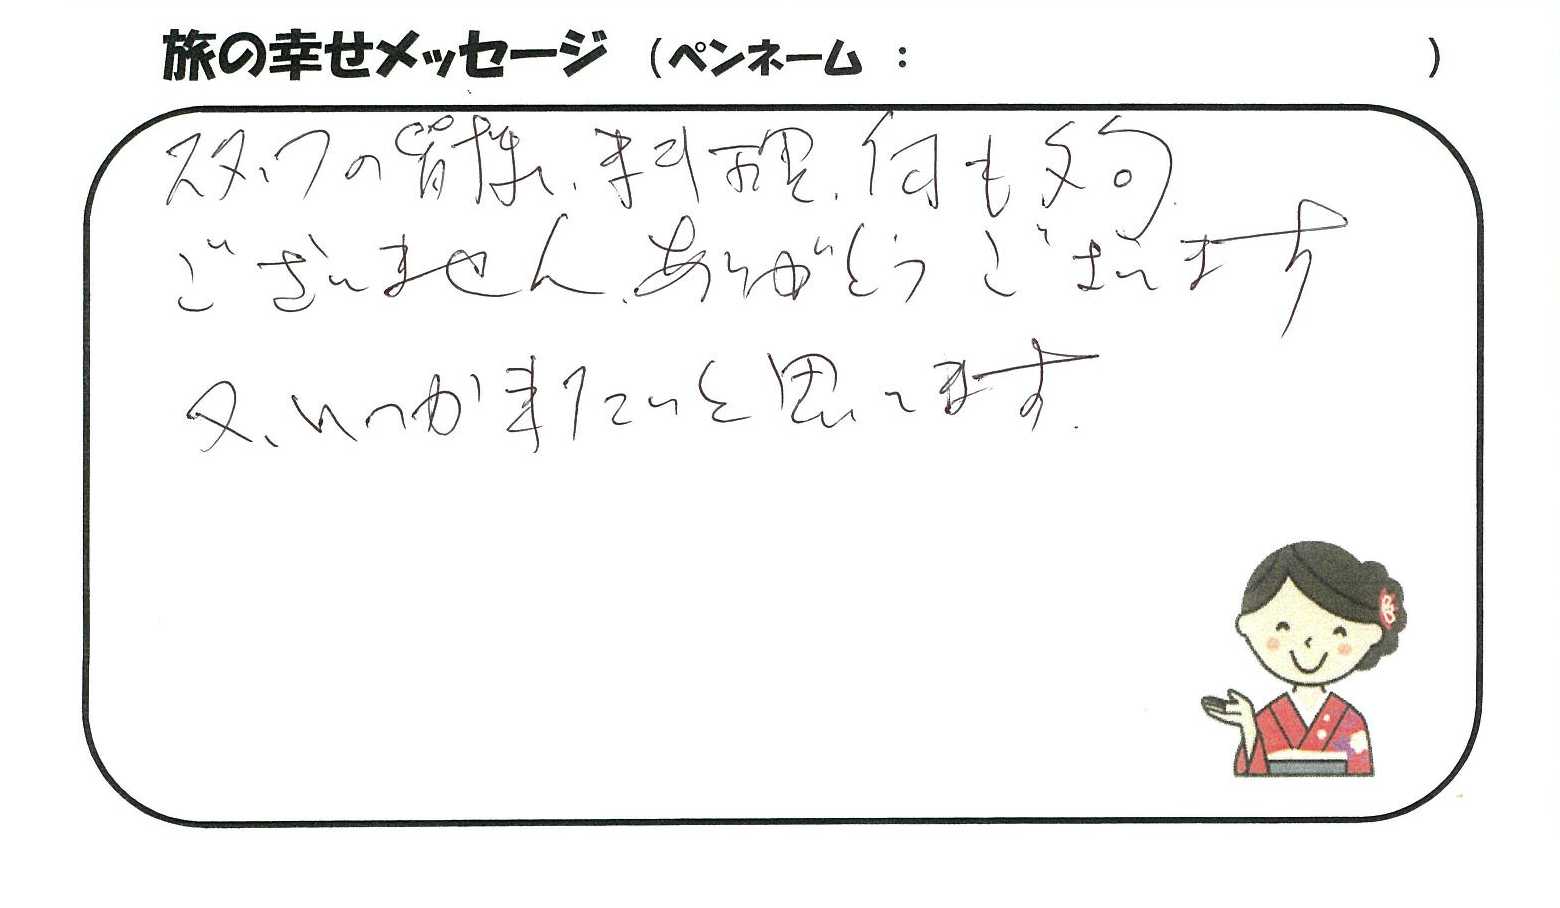 旅の幸せメッセージ (ペンネーム : )
スタッフの皆様、料理、何も文句
ございません。ありがとうございます
又、いつか来たいと思います。